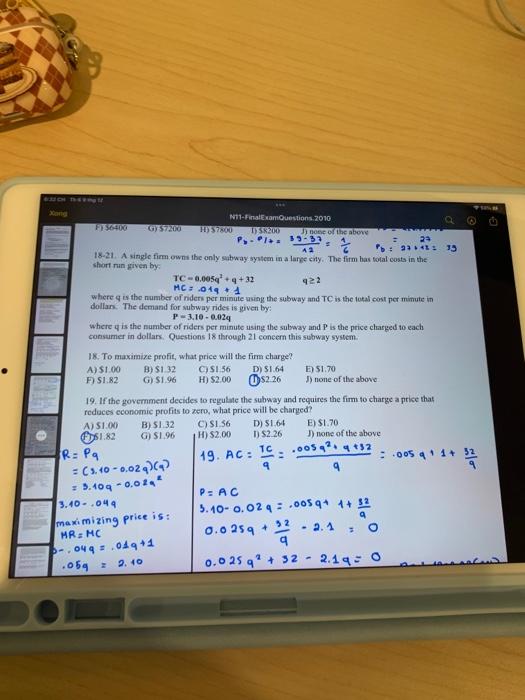 Xong
N11-FinalExamQuestions.2010
F) $6400 G) $7200 H) $7800 I) $8200 J) none of the above
18-21. A single firm owns the only subway system in a large city. The firm has total costs in the
short run given by:
TC = 0.005q² + q + 32 q ≥ 2
MC = .01q + 1
where q is the number of riders per minute using the subway and TC is the total cost per minute in
dollars. The demand for subway rides is given by:
P = 3.10 - 0.02q
where q is the number of riders per minute using the subway and P is the price charged to each
consumer in dollars. Questions 18 through 21 concern this subway system.
18. To maximize profit, what price will the firm charge?
A) $1.00 B) $1.32 C) $1.56 D) $1.64 E) $1.70
F) $1.82 G) $1.96 H) $2.00 I) $2.26 J) none of the above
19. If the government decides to regulate the subway and requires the firm to charge a price that
reduces economic profits to zero, what price will be charged?
A) $1.00 B) $1.32 C) $1.56 D) $1.64 E) $1.70
F) $1.82 G) $1.96 H) $2.00 I) $2.26 J) none of the above
R = Pq
= (3.10 - 0.02q)(q)
= 3.10q - 0.02q²
3.10 - .04q
maximizing price is:
MR = MC
- .04q = .01q + 1
.05q = 2.10
19. AC = TC/q = .005q² + q + 32 / q = .005q + 1 + 32/q
P = AC
3.10 - 0.02q = .005q + 1 + 32/q
0.025q + 32/q - 2.1 = 0
0.025q² + 32 - 2.1q = 0